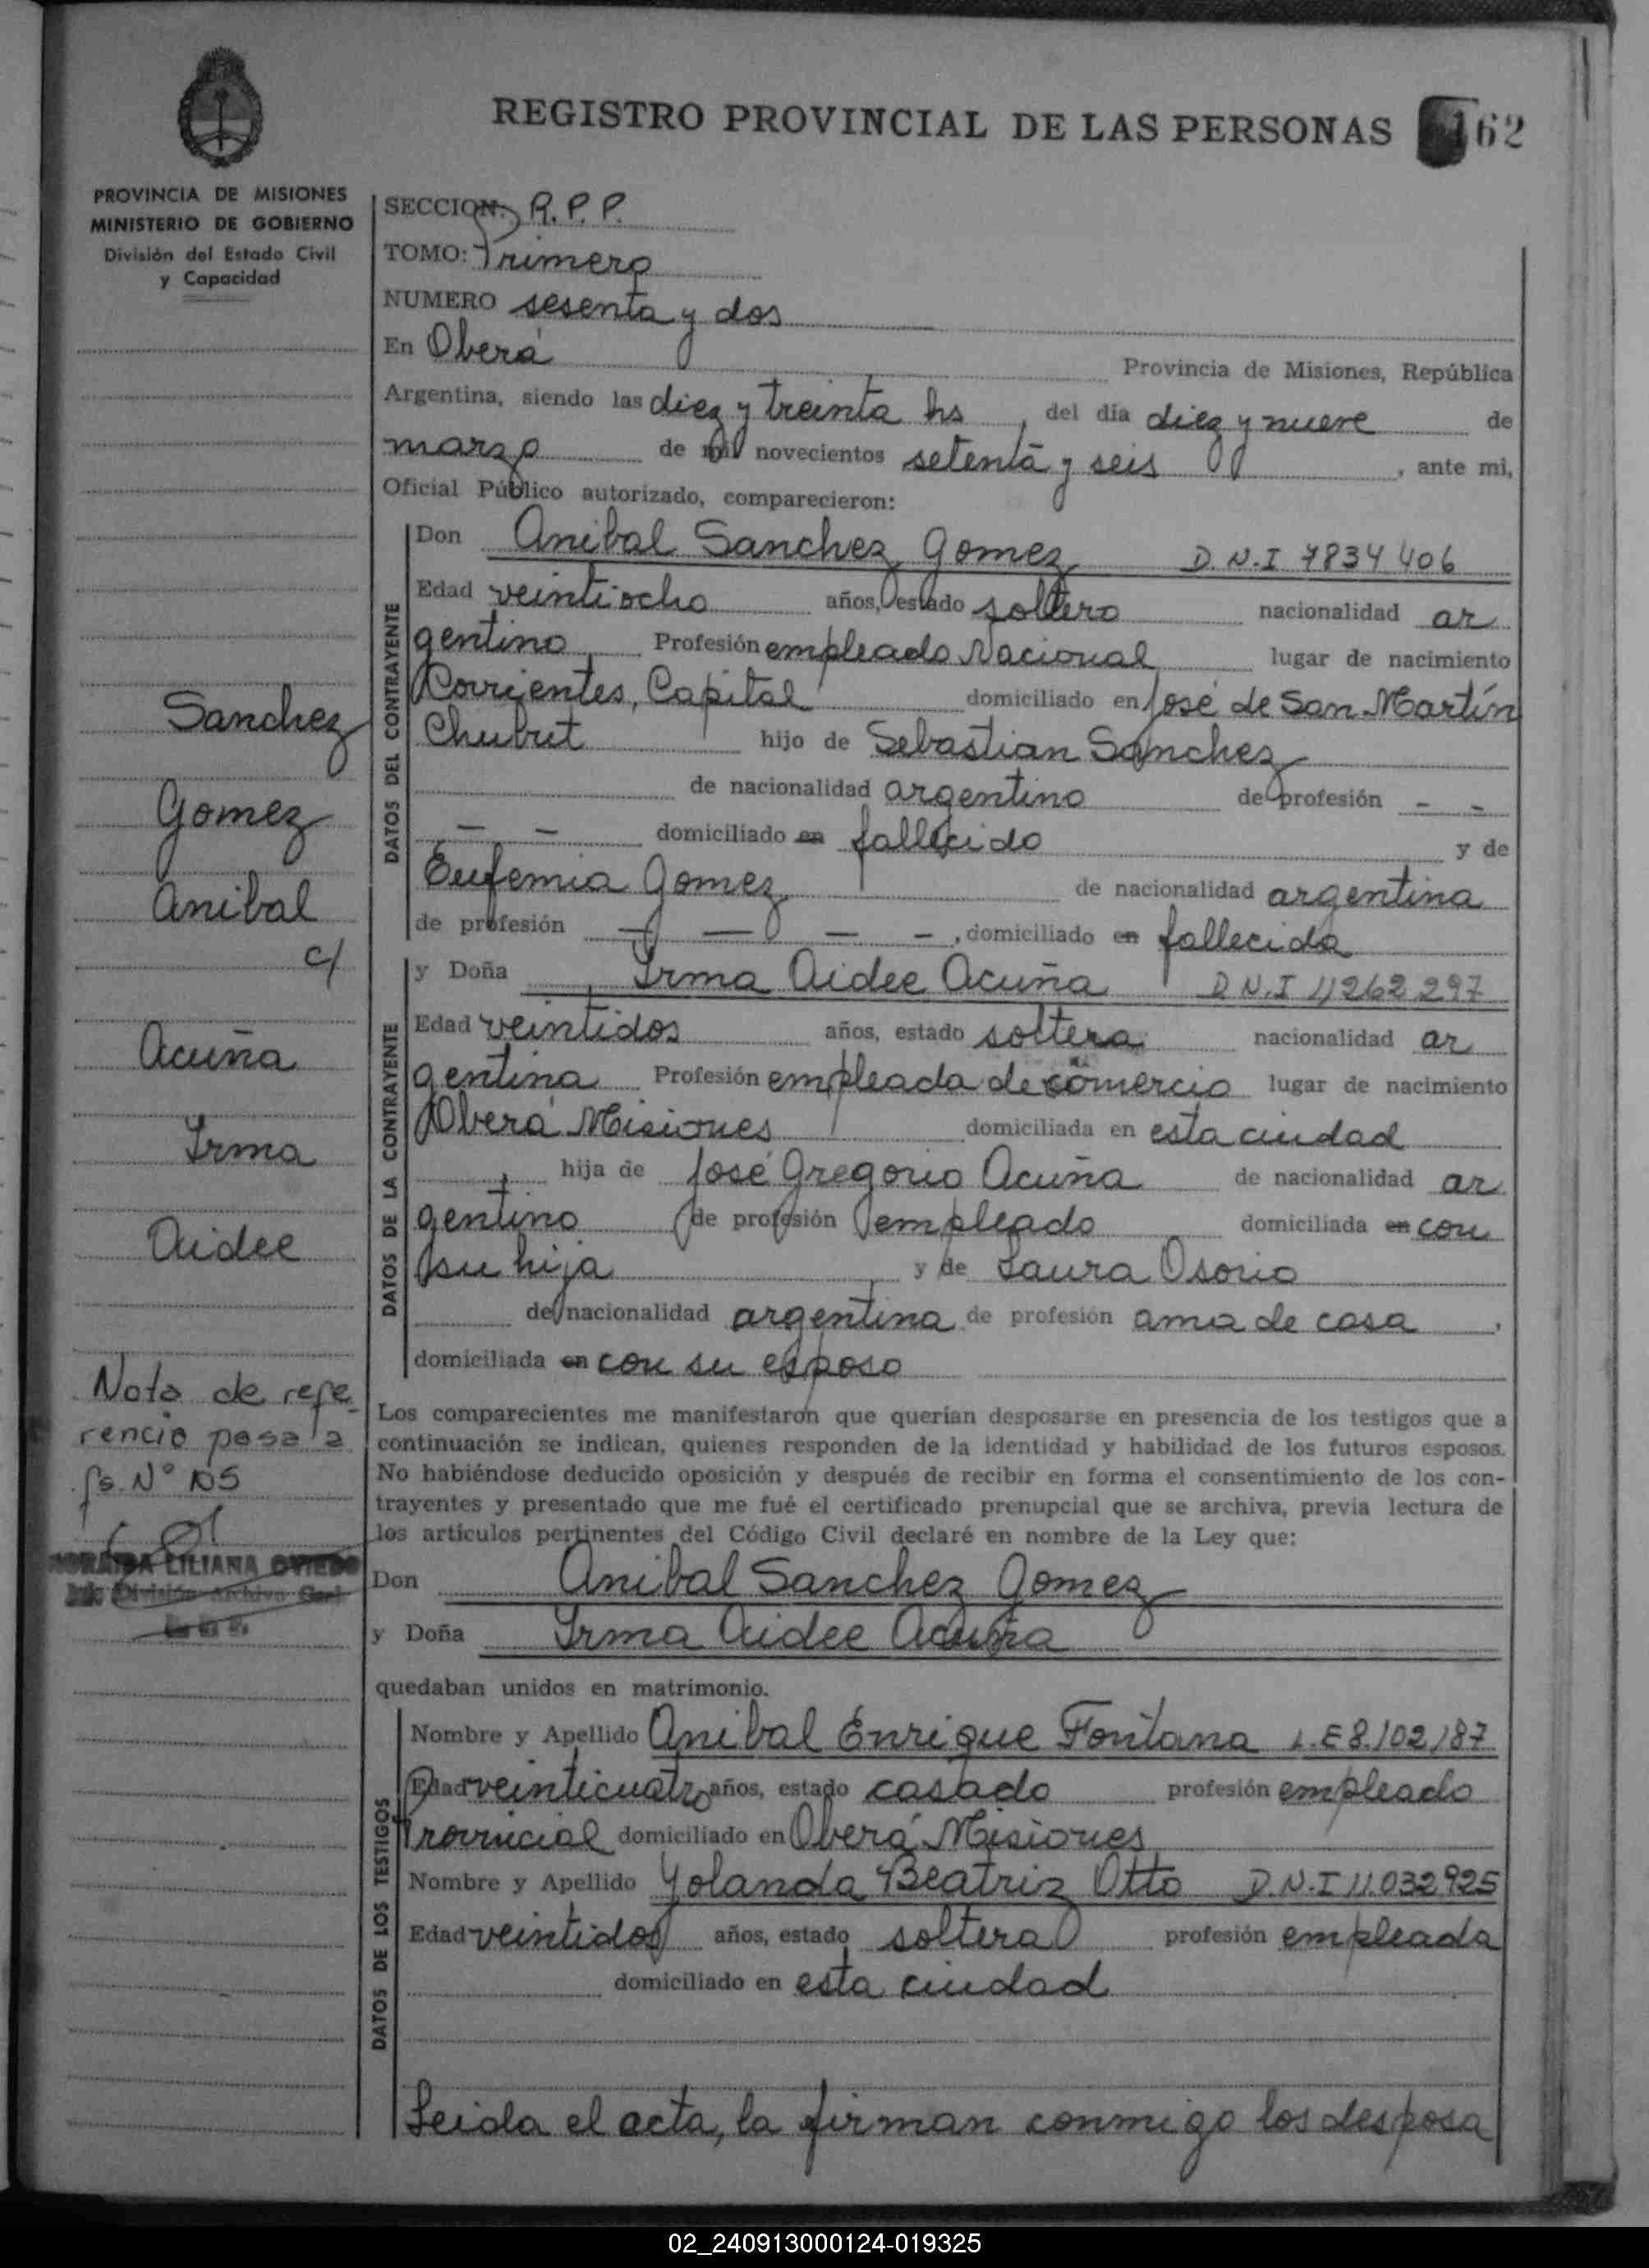 REGISTRO PROVINCIAL DE LAS PERSONAS 62
PROVINCIA DE MISIONES
MINISTERIO DE GOBIERNO
División del Estado Civil
y Capacidad
SECCION: R. P. P.
TOMO: Primero
NUMERO sesenta y dos
En Oberá Provincia de Misiones, República
Argentina, siendo las diez y treinta hs, del día diez y nueve de
marzo de mil novecientos setenta y seis, ante mi,
Oficial Público autorizado, comparecieron:
DATOS DEL CONTRAYENTE
Don Anibal Sanchez Gomez D.N.I 7834406
Edad veintiocho años, estado soltero nacionalidad ar
gentino Profesión empleado Nacional lugar de nacimiento
Corrientes, Capital domiciliado en José de San Martín
Chubut hijo de Sebastian Sanchez
de nacionalidad argentino de profesión - -
- - domiciliado en fallecido y de
Eufemia Gomez de nacionalidad argentina
de profesión - - - -, domiciliado en fallecida
y Doña Irma Aidee Acuña D.N.I 11262297
DATOS DE LA CONTRAYENTE
Edad veintidos años, estado soltera nacionalidad ar
gentina Profesión empleada de comercio lugar de nacimiento
Oberá Misiones domiciliada en esta ciudad
hija de José Gregorio Acuña de nacionalidad ar
gentino de profesión empleado domiciliada en con
su hija y de Laura Osorio
de nacionalidad argentina de profesión ama de casa,
domiciliada en con su esposo
Los comparecientes me manifestaron que querían desposarse en presencia de los testigos que a
continuación se indican, quienes responden de la identidad y habilidad de los futuros esposos.
No habiéndose deducido oposición y después de recibir en forma el consentimiento de los con-
trayentes y presentado que me fué el certificado prenupcial que se archiva, previa lectura de
los artículos pertinentes del Código Civil declaré en nombre de la Ley que:
Don Anibal Sanchez Gomez
y Doña Irma Aidee Acuña
quedaban unidos en matrimonio.
DATOS DE LOS TESTIGOS
Nombre y Apellido Anibal Enrique Fontana L.E 8.102.187
Edad veinticuatro años, estado casado profesión empleado
Provincial domiciliado en Oberá Misiones
Nombre y Apellido Yolanda Beatriz Otto D.N.I 11.032925
Edad veintidos años, estado soltera profesión empleada
domiciliado en esta ciudad
Leida el acta, la firman conmigo los desposa
Sanchez
Gomez
Anibal
c/
Acuña
Irma
Aidee
Nota de refe
rencia pasa a
fs. N° 105
LILIANA OVIEDO
División Archivo Gral
02_240913000124-019325